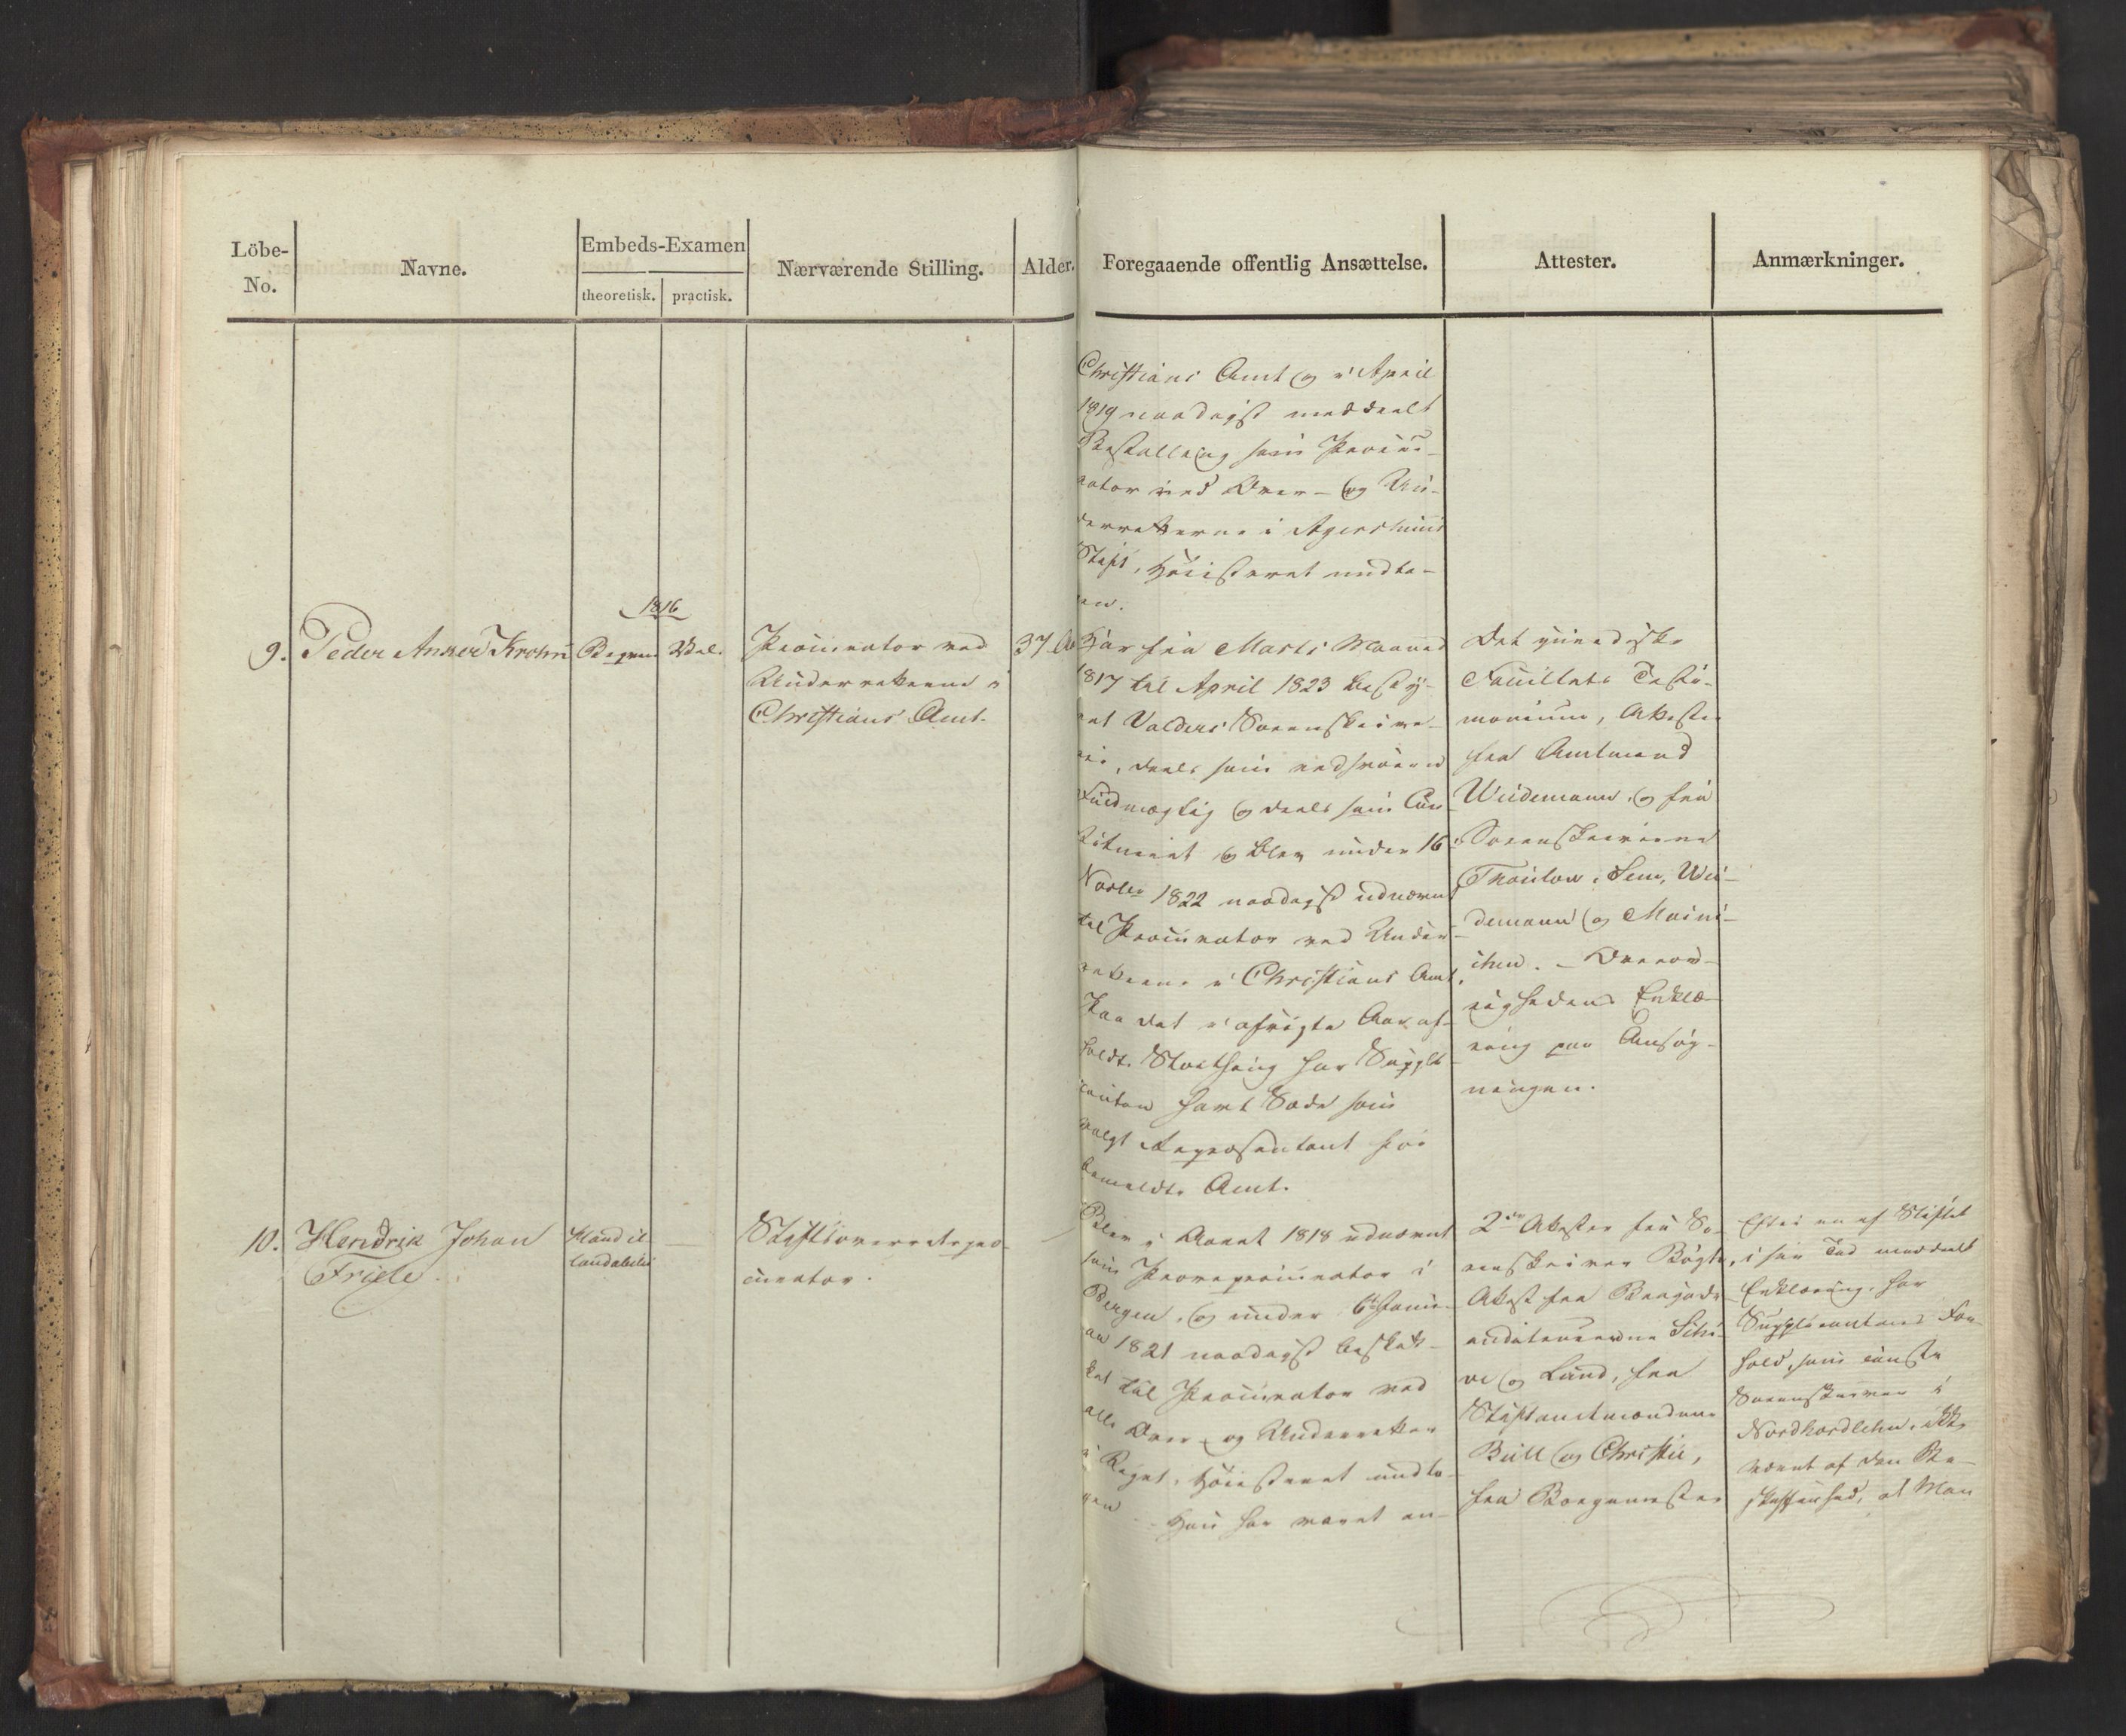 Löbe-
No.
Navne.
Embeds-Examen
theoretisk.
practisk.
Nærværende Stilling.
Alder.
Foregaaende offentlig Ansættelse.
Attester.
Anmærkninger.
Christians Amt og i April
1819 naadigst meddeelt
Bestalling som Procu-
rator ved Over- og Un-
derretterne i Agershuus
Stift, Höiesteret undta-
gen.
9.
Peder Anker Krohn
1816
Beqvem
Vel.
Procurator ved
Underretterne i
Christians Amt.
37 Aar
Har fra Marts Maaned
1817 til April 1823 besty-
ret Valders Sorenskrive-
rie, deels som edsvoren
Fuldmægtig og deels som Con-
stitueret og blev under 16
Novbr 1822 naadigst udnævnt
til Procurator ved Under-
retterne i Christians Amt.
Paa det i afvigte Aar af-
holdte Storthing har Suppli-
canten havt Sæde som
valgt Repræsentant for
bemeldte Amt.
Det juridiske
Facultets Testi-
monium, Attester
fra Amtmand
Weidemann, og fra
Sorenskriverne
Thaulow, Sem, Wei-
demann og Muni-
chen. - Overøv-
righedens Erklæ-
ring paa Ansøg-
ningen.
10.
Hendrik Johan
Friele.
Haud il
laudabilis
-
Stiftsoverretspro-
curator.
Blev i Aaret 1818 udnævnt
som Prøveprocurator i
Bergen, og under 6 Janu-
ar 1821 naadigst beskik-
ket til Procurator ved
alle Over- og Underretter
i Riget, Höiesteret undta-
gen - Han har været an-
2de Attester fra So-
renskriver Bøgh,
Attest fra Brigade-
auditeurerne
og Lund, fra
Stiftamtmændene
Bull og Christie,
fra Borgermester
Efter en af Stiftet
i sin Tid meddeelt
Erklæring, har
Supplicantens For-
hold, som const.
Sorenskriver i
Nordhordlehn, ikke
været af den Be-
skaffenhed, at Man